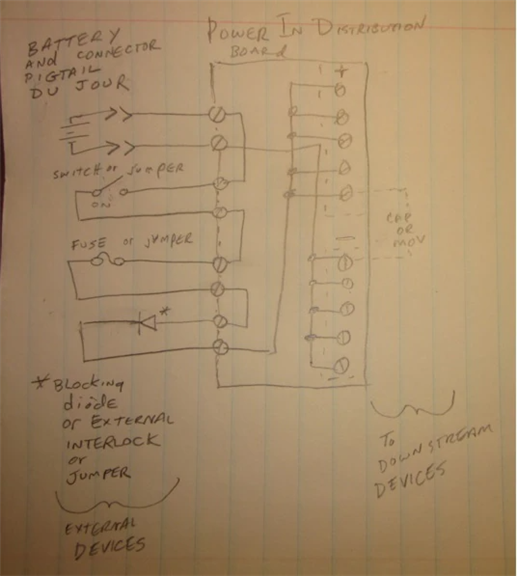 BATTERY
AND CONNECTOR
PIGTAIL
DU JOUR
POWER IN DISTRIBUTION
BOARD
+
SWITCH or JUMPER
ON
FUSE or JUMPER
*
—
CAP
OR
MOV
* Blocking
diode
or EXTERNAL
INTERLOCK
or
JUMPER
EXTERNAL
DEVICES
To
DOWNSTREAM
DEVICES